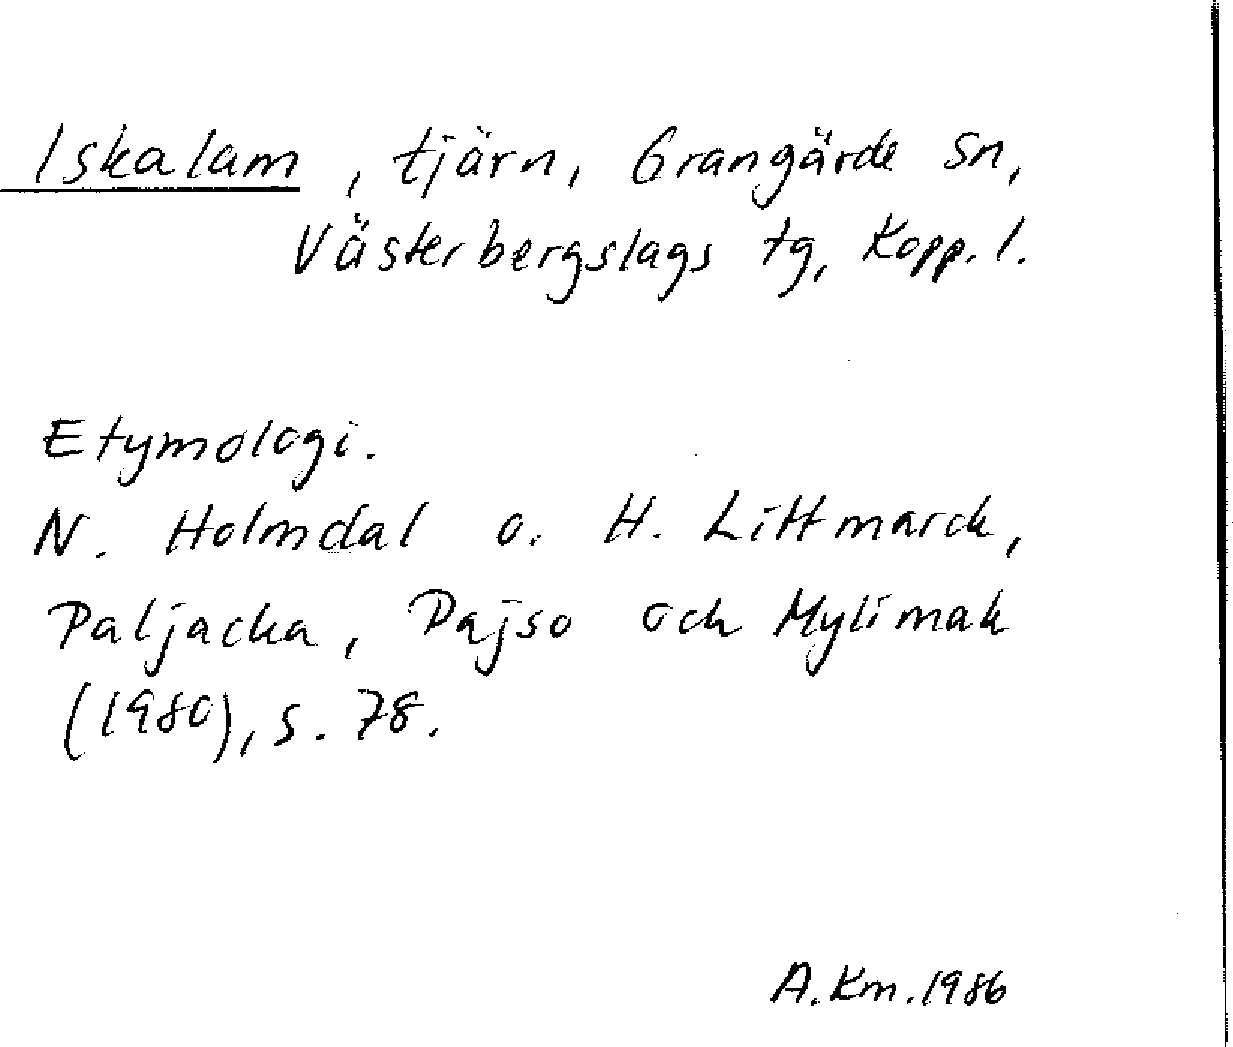 Iskalam, tjärn, Grangärde sn,
Västerbergslags tg, Kopp. l.
Etymologi.
N. Holmdal o. H. Littmarck,
Paljacka, Pajso och Mylimak
(1980), s. 78.
A. Km. 1986